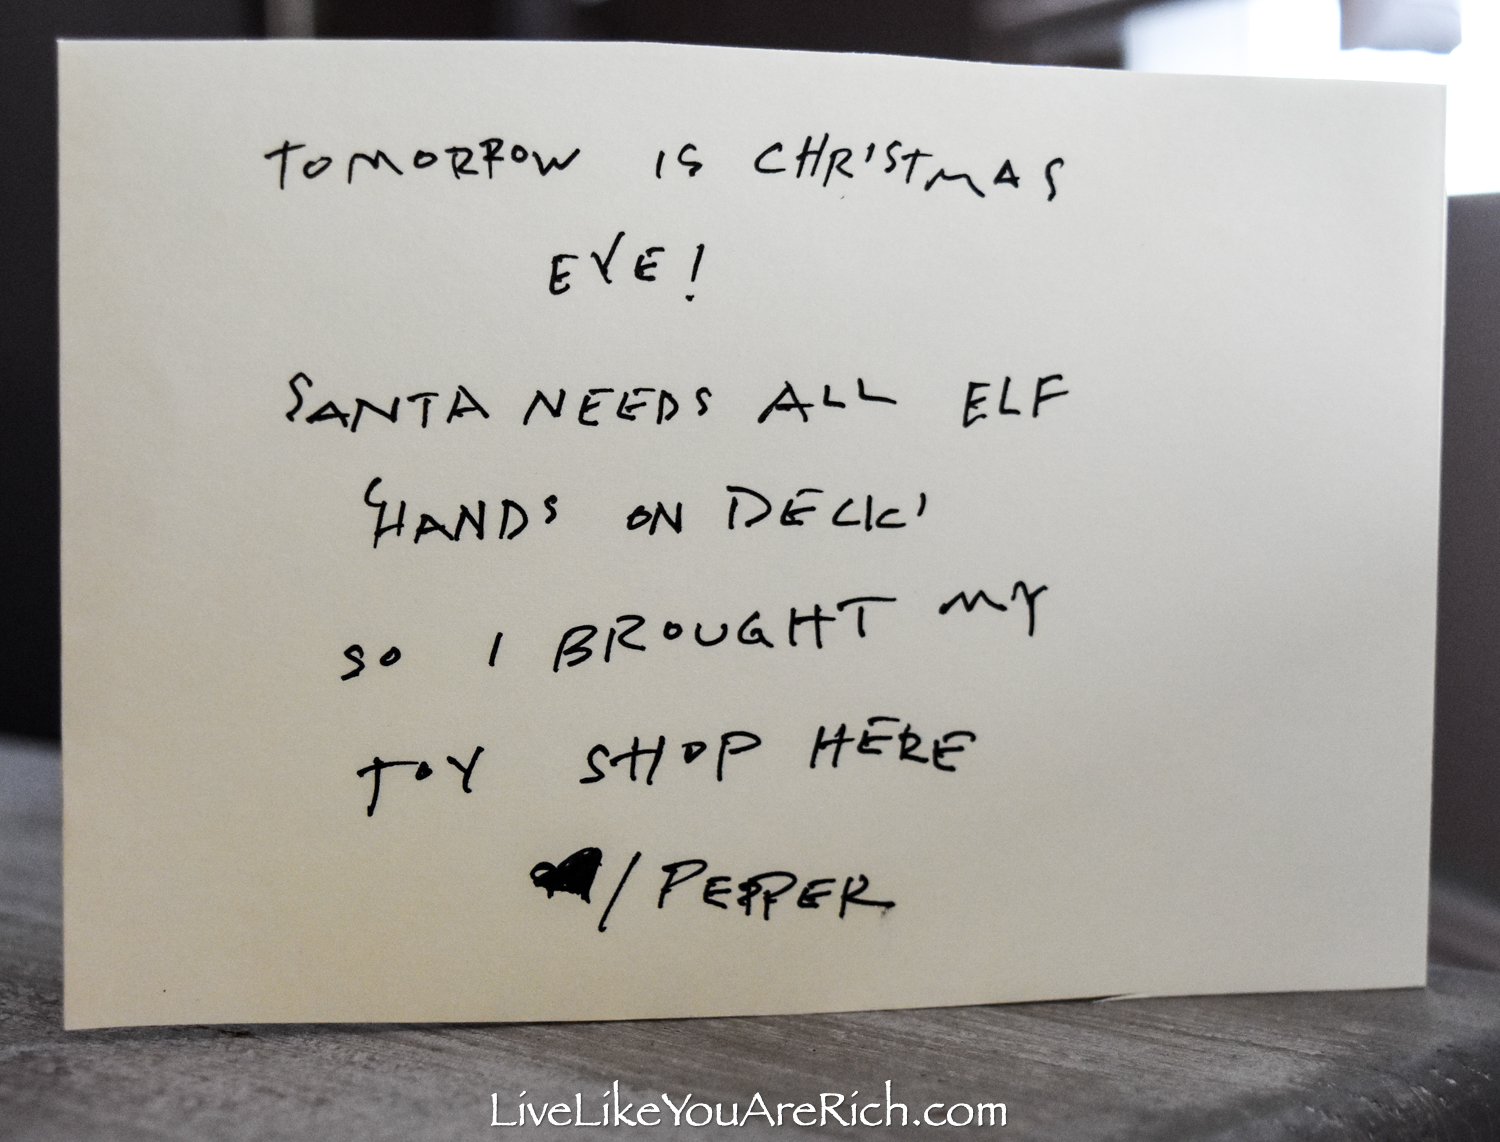 TOMORROW IS CHRISTMAS
EVE!
SANTA NEEDS ALL ELF
'HANDS ON DECK'
SO I BROUGHT MY
TOY SHOP HERE
/ PEPPER
LiveLikeYouAreRich.com